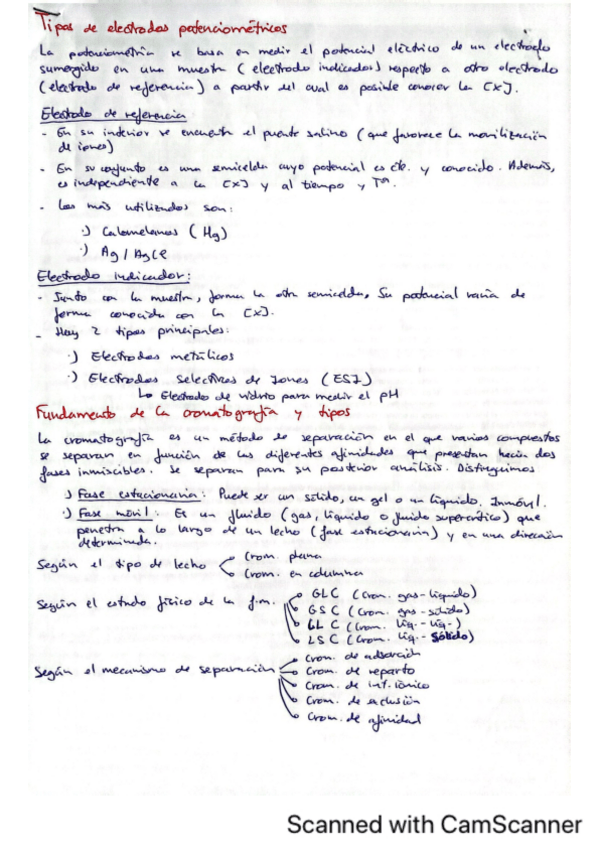 Tipos de electrodos potenciométricos
La potenciometría se basa en medir el potencial eléctrico de un electrodo
sumergido en una muestra (electrodo indicador) respecto a otro electrodo
(electrodo de referencia) a partir del cual es posible conocer la [X].
Electrodo de referencia
- En su interior se encuentra el puente salino (que favorece la movilización
de iones)
- En su conjunto es una semicelda cuyo potencial es cte. y conocido. Además,
es independiente a la [X] y al tiempo y Tª.
- Los más utilizados son:
·) Calomelanos (Hg)
·) Ag/AgCl
Electrodo indicador:
- Junto con la muestra, forma la otra semicelda. Su potencial varía de
forma conocida con la [X].
- Hay 2 tipos principales:
·) Electrodos metálicos
·) Electrodos selectivos de Iones (ESI)
↳ Electrodo de vidrio para medir el pH
Fundamento de la cromatografía y tipos
La cromatografía es un método de separación en el que varios compuestos
se separan en función de las diferentes afinidades que presentan hacia dos
fases inmiscibles. Se separan para su posterior análisis. Distinguimos
·) Fase estacionaria: Puede ser un sólido, un gel o un líquido. Inmóvil.
·) Fase móvil: Es un fluido (gas, líquido o fluido supercrítico) que
penetra a lo largo de un lecho (fase estacionaria) y en una dirección
determinada.
Según el tipo de lecho
Crom. plana
Crom. en columna
Según el estado físico de la f.m.
GLC (Crom. gas-líquido)
GSC (Crom. gas-sólido)
LLC (Crom. líq.-líq.)
LSC (Crom. líq.-sólido)
Según el mecanismo de separación
Crom. de adsorción
Crom. de reparto
Crom. de int. iónico
Crom. de exclusión
Crom. de afinidad
Scanned with CamScanner